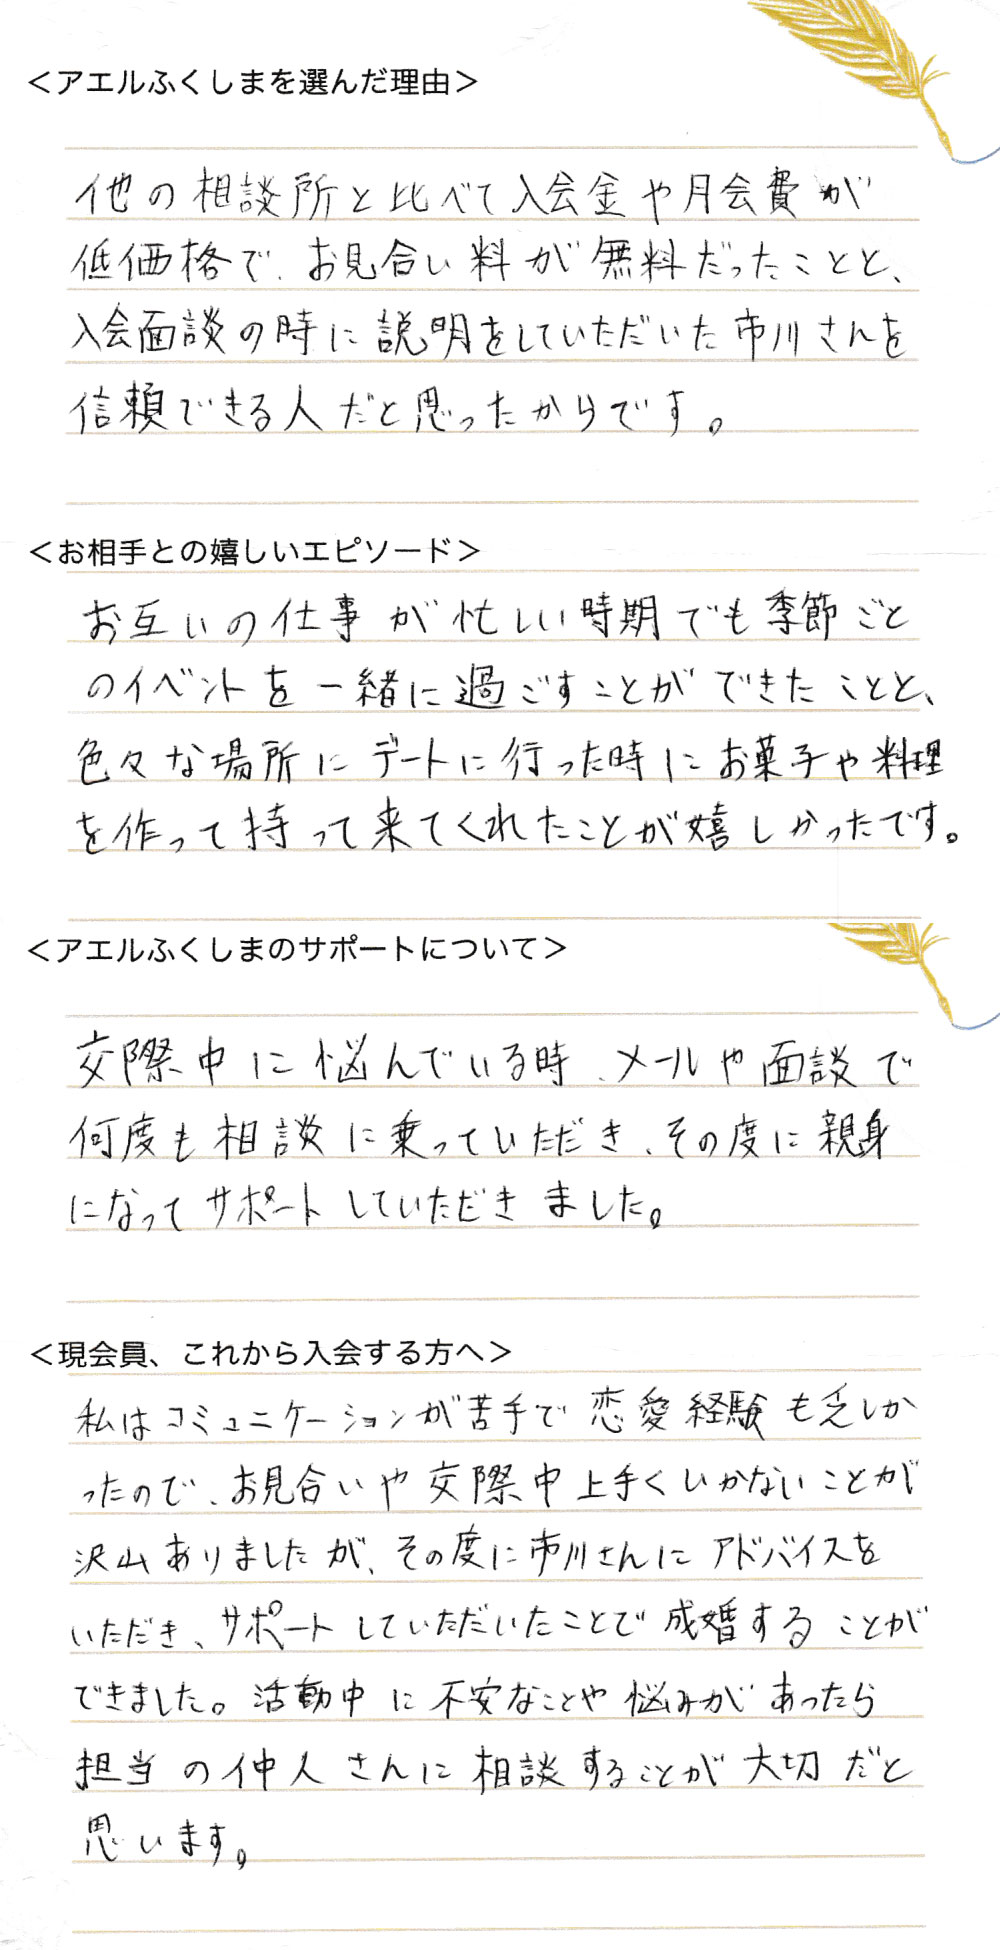 ＜アエルふくしまを選んだ理由＞
他の相談所と比べて入会金や月会費が
低価格で、お見合い料が無料だったことと、
入会面談の時に説明をしていただいた市川さんを
信頼できる人だと思ったからです。
＜お相手との嬉しいエピソード＞
お互いの仕事が忙しい時期でも季節ごと
のイベントを一緒に過ごすことができたことと、
色々な場所にデートに行った時にお菓子や料理
を作って持って来てくれたことが嬉しかったです。
＜アエルふくしまのサポートについて＞
交際中に悩んでいる時、メールや面談で
何度も相談に乗っていただき、その度に親身
になってサポートしていただきました。
＜現会員、これから入会する方へ＞
私はコミュニケーションが苦手で恋愛経験も乏しか
ったので、お見合いや交際中上手くいかないことが
沢山ありましたが、その度に市川さんにアドバイスを
いただき、サポートしていただいたことで成婚することが
できました。活動中に不安なことや悩みがあったら
担当の仲人さんに相談することが大切だと
思います。